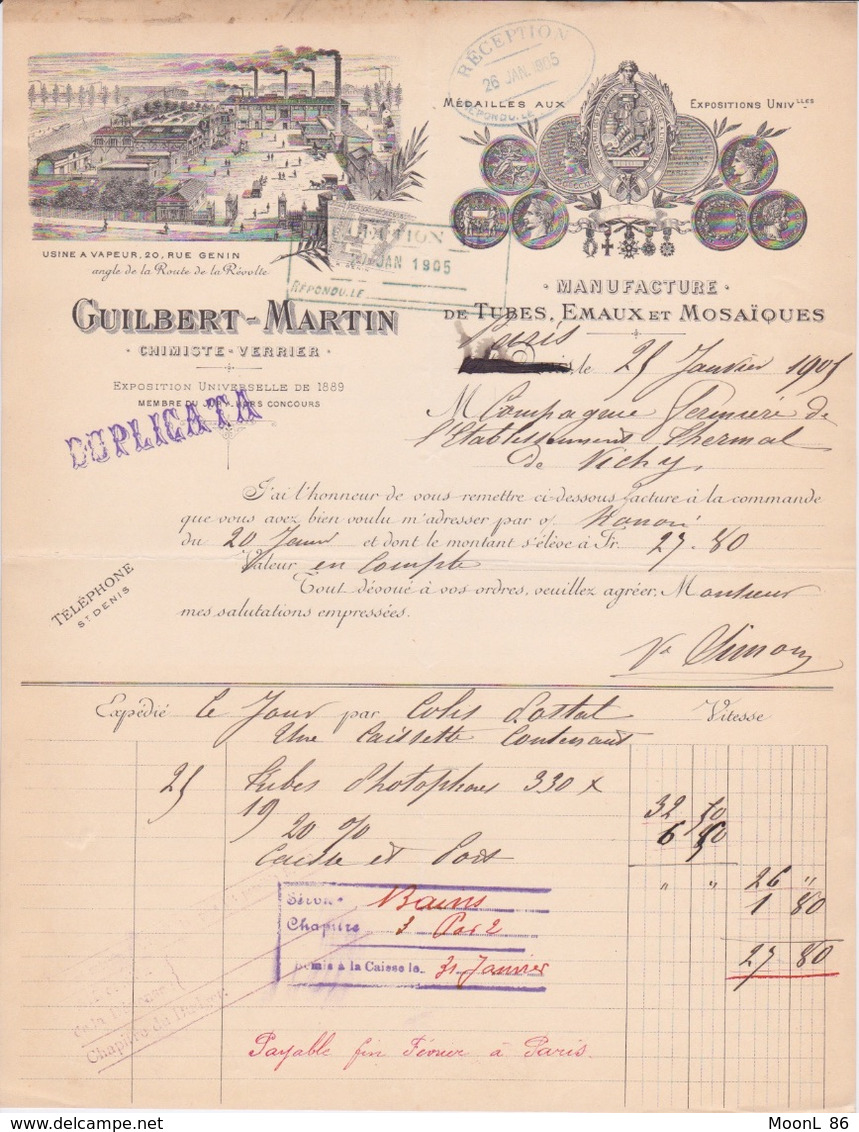 RÉCEPTION
26 JAN. 1905
RÉPONDU, LE
MÉDAILLES AUX EXPOSITIONS UNIV^LLES
USINE A VAPEUR, 20, RUE GENIN
angle de la Route de la Révolte
JAN 1905
RÉPONDU, LE
GUILBERT-MARTIN
· CHIMISTE-VERRIER ·
EXPOSITION UNIVERSELLE DE 1889
MEMBRE DU JURY, HORS CONCOURS
DUPLICATA
· MANUFACTURE ·
DE TUBES, EMAUX ET MOSAÏQUES
Paris
le 25 Janvier 1905
M Compagnie Fermière de
l'Etablissement Thermal
de Vichy
J'ai l'honneur de vous remettre ci-dessous facture à la commande
que vous avez bien voulu m'adresser par
du 20 Janv et dont le montant s'élève à Fr. 27.80
Valeur en Compte
Tout dévoué à vos ordres, veuillez agréer, Monsieur
mes salutations empressées.
TÉLÉPHONE
ST DENIS
Vve Simon
Expédié Ce Jour par Colis Postal Vitesse
Une Caissette Contenant
25 Tubes Photophores 330 x
19 32 50
20 % 6 50
Caisse et Port
" " 26 "
1 80
27 80
Bains
Chapitre 3 Par 2
Remis à la Caisse le 31 Janvier
Chapitre du Budget
Payable fin Février à Paris.
MoonL 86